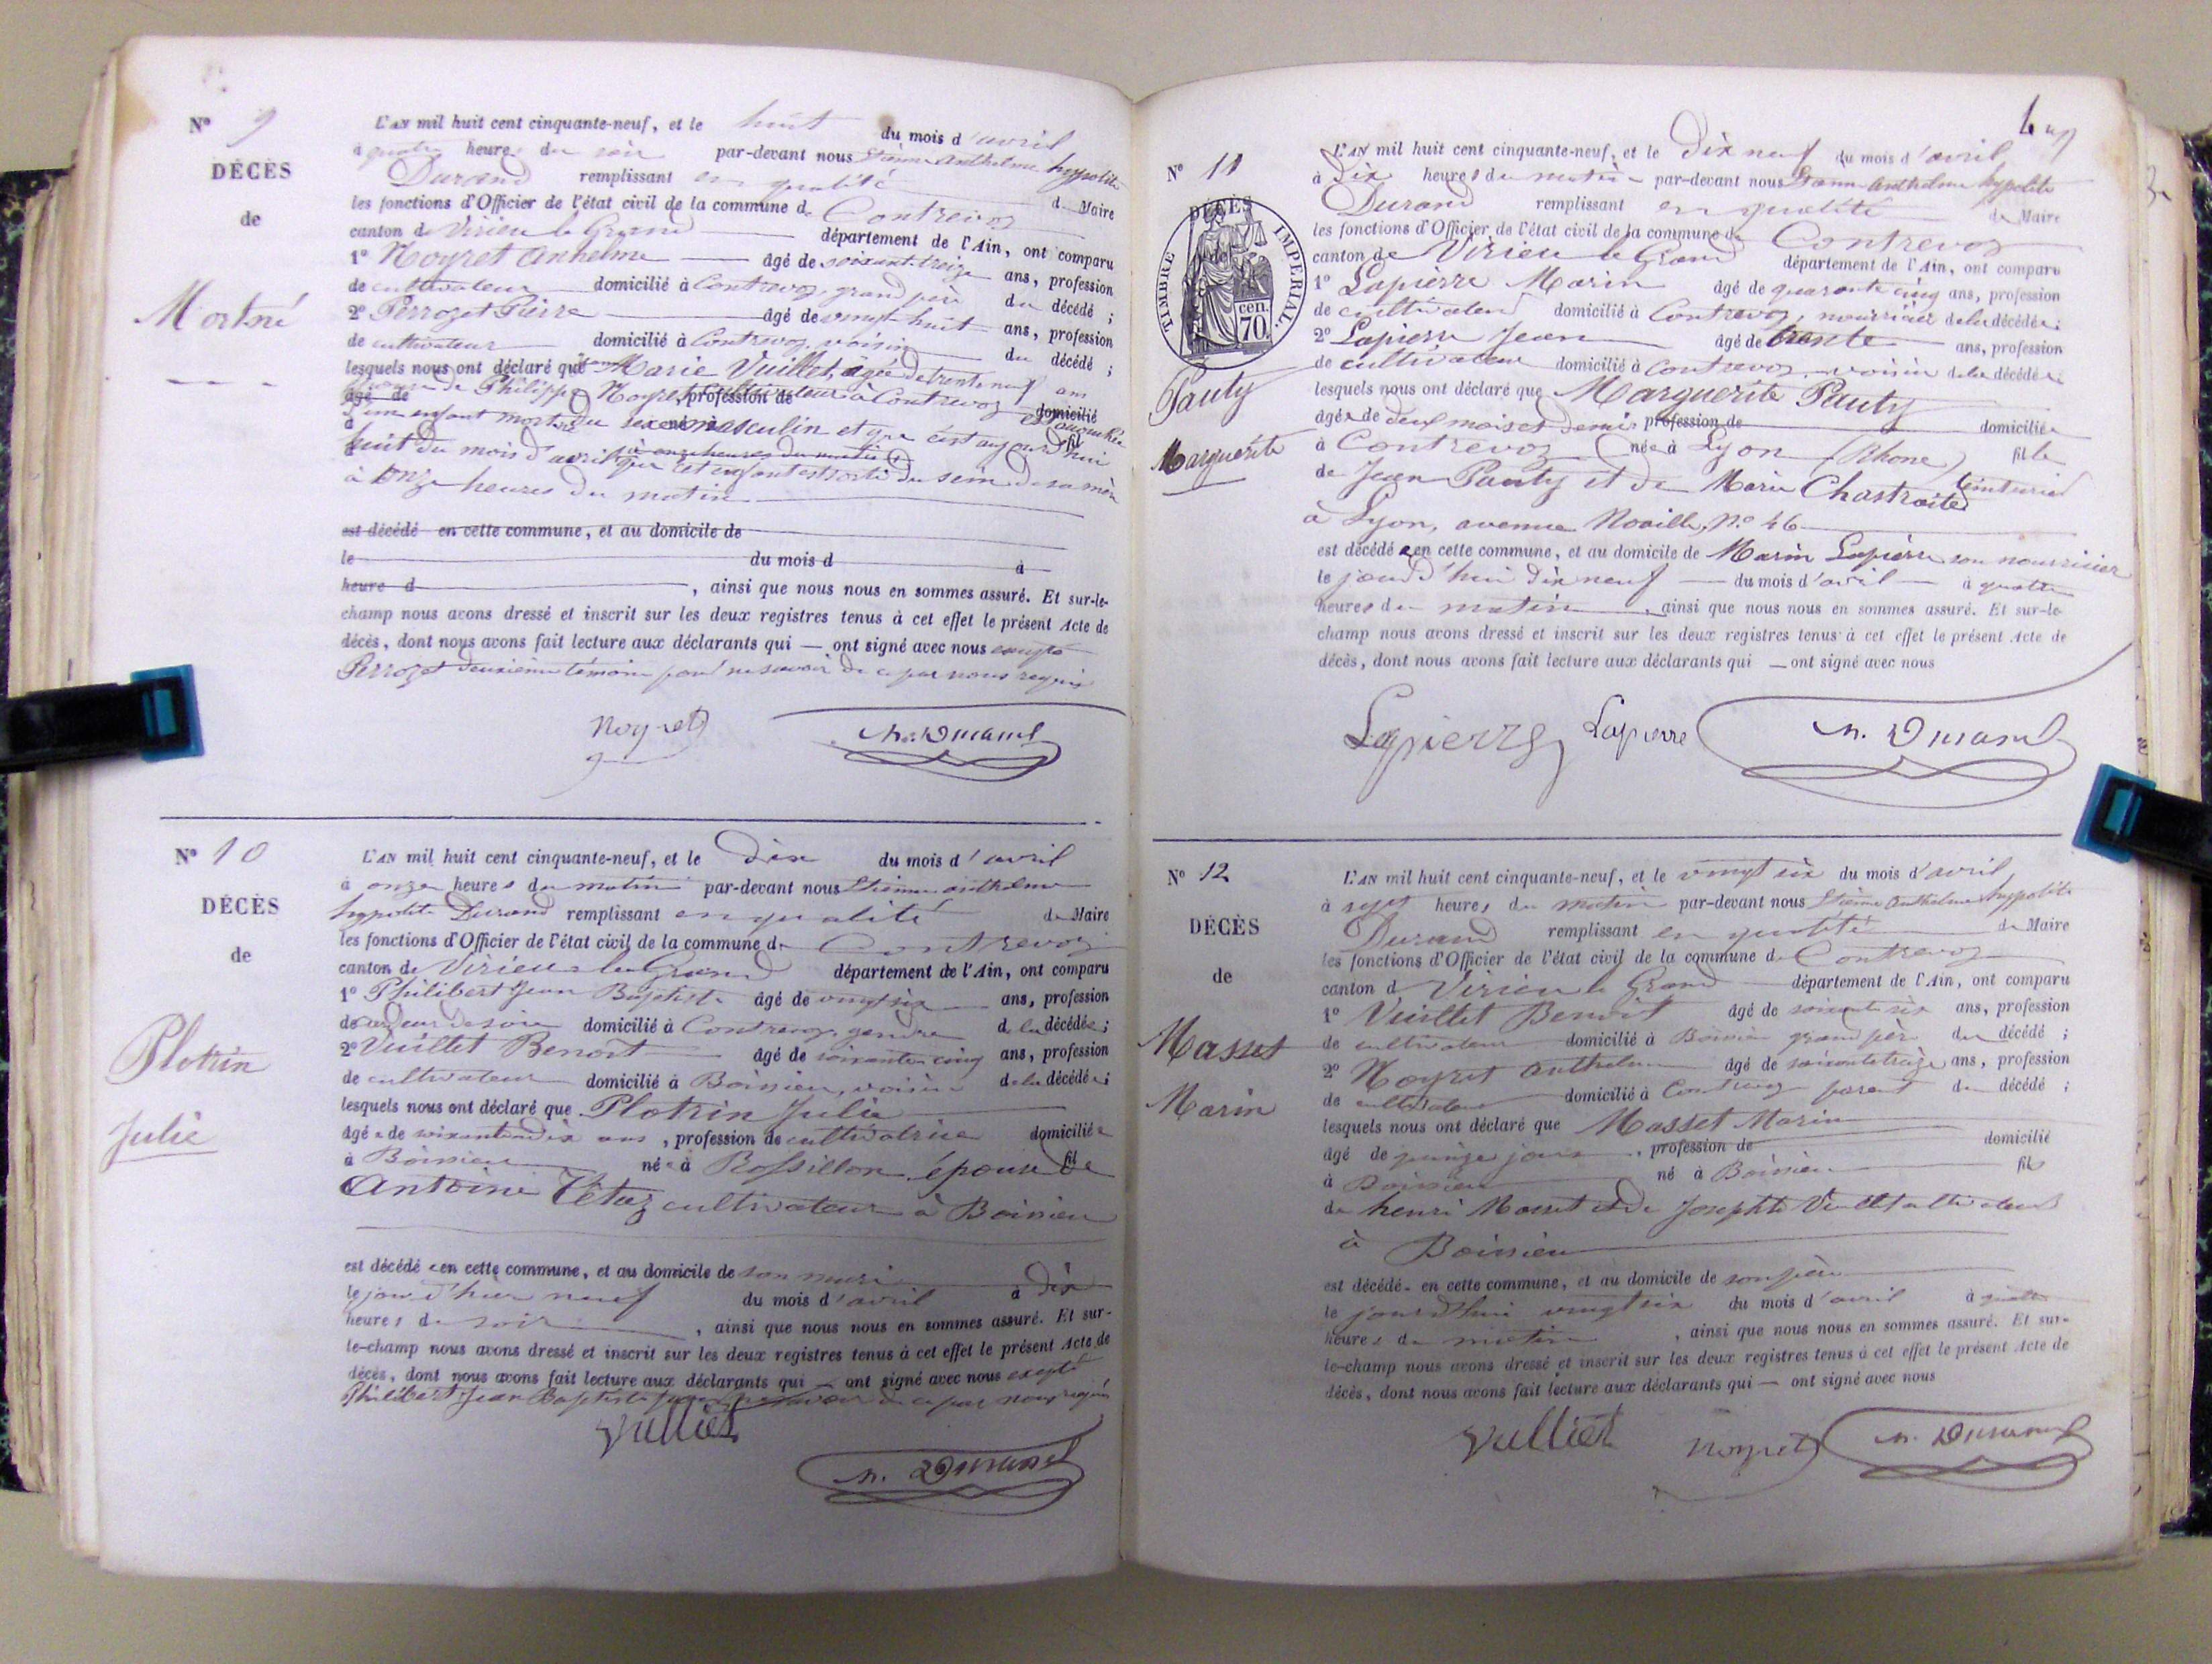 N° 9
DÉCÈS
de
Mortné
L'AN mil huit cent cinquante-neuf, et le huit du mois d'avril
à quatre heures du soir par-devant nous Etienne Anthelme hyppolite
Durand remplissant en qualité de Maire
les fonctions d'Officier de l'état civil de la commune de Contrevoz
canton de Virieu le Grand département de l'Ain, ont comparu
1° Noyret Anhelme âgé de soixante treize ans, profession
de cultivateur domicilié à Contrevoz, grand père du décédé ;
2° Perrozet Pierre âgé de vingt huit ans, profession
de cultivateur domicilié à Contrevoz, voisin du décédé ;
lesquels nous ont déclaré que Marie Vuillet, âgée de trente neuf ans
âgé de épouse de Philippe Noyret, profession de cultivateur à Contrevoz domicilié est accouchée
à d'un enfant mort né du sexe masculin et que c'est aujourd'hui
huit du mois d'avril à onze heures du matin que cet enfant est sorti du sein de sa mère
à onze heures du matin
est décédé en cette commune, et au domicile de
le du mois d à
heure d , ainsi que nous nous en sommes assuré. Et sur-le-
champ nous avons dressé et inscrit sur les deux registres tenus à cet effet le présent Acte de
décès, dont nous avons fait lecture aux déclarants qui — ont signé avec nous excepté
Perrozet deuxième témoin pour ne savoir de ce par nous requis
Noyret h. Durand
N° 10
DÉCÈS
de
Plotrin
Julie
L'AN mil huit cent cinquante-neuf, et le dix du mois d'avril
à onze heures du matin par-devant nous Etienne anthelme
hyppolite Durand remplissant en qualité de Maire
les fonctions d'Officier de l'état civil de la commune de Contrevoz
canton de Virieu le Grand département de l'Ain, ont comparu
1° Philibert Jean Baptiste âgé de vingt six ans, profession
de cardeur de soie domicilié à Contrevoz, gendre de la décédée ;
2° Vuillet Benoit âgé de soixante cinq ans, profession
de cultivateur domicilié à Boissieu, voisin de la décédée ;
lesquels nous ont déclaré que Plotrin Julie
âgée de soixante dix ans, profession de cultivatrice domiciliée
à Boissieu née à Rossillon épouse de
Antoine Tétaz cultivateur à Boissieu
est décédée en cette commune, et au domicile de son mari
le jour d'hier neuf du mois d'avril à dix
heures du soir , ainsi que nous nous en sommes assuré. Et sur-
le-champ nous avons dressé et inscrit sur les deux registres tenus à cet effet le présent Acte de
décès, dont nous avons fait lecture aux déclarants qui — ont signé avec nous excepté
Philibert Jean Baptiste pour ne savoir de ce par nous requis
Vulliet
h. Durand
N° 11
DÉCÈS
de
TIMBRE IMPERIAL.
70 cen.
Pauty
Marguerite
L'AN mil huit cent cinquante-neuf, et le Dix neuf du mois d'avril
à Dix heures du matin par-devant nous Etienne Anthelme hyppolite
Durand remplissant en qualité de Maire
les fonctions d'Officier de l'état civil de la commune de Contrevoz
canton de Virieu le Grand département de l'Ain, ont comparu
1° Lapierre Marin âgé de quarante cinq ans, profession
de cultivateur domicilié à Contrevoz, nourricier de la décédée ;
2° Lapierre Jean âgé de trente ans, profession
de cultivateur domicilié à Contrevoz, voisin de la décédée ;
lesquels nous ont déclaré que Marguerite Pauty
âgée de deux mois et demi profession de domiciliée
à Contrevoz née à Lyon (Rhone) fille
de Jean Pauty et de Marie Chastraite teinturier
à Lyon, avenue Noaille, N° 46
est décédée en cette commune, et au domicile de Marin Lapierre son nourricier
le jourd'hui dix neuf du mois d'avril à quatre
heures du matin , ainsi que nous nous en sommes assuré. Et sur-le-
champ nous avons dressé et inscrit sur les deux registres tenus à cet effet le présent Acte de
décès, dont nous avons fait lecture aux déclarants qui — ont signé avec nous
Lapierre Lapierre h. Durand
N° 12
DÉCÈS
de
Masset
Marin
L'AN mil huit cent cinquante-neuf, et le vingt six du mois d'avril
à sept heures du matin par-devant nous Etienne Anthelme hyppolite
Durand remplissant en qualité de Maire
les fonctions d'Officier de l'état civil de la commune de Contrevoz
canton de Virieu le Grand département de l'Ain, ont comparu
1° Vuillet Benoit âgé de soixante six ans, profession
de cultivateur domicilié à Boissieu grand père du décédé ;
2° Noyret Anthelme âgé de soixante treize ans, profession
de cultivateur domicilié à Contrevoz parent du décédé ;
lesquels nous ont déclaré que Masset Marin
âgé de quinze jours, profession de domicilié
à Boissieu né à Boissieu fils
de henri Masset et de Josephte Vuillet cultivateurs
à Boissieu
est décédé en cette commune, et au domicile de son père
le jourd'hui vingt six du mois d'avril à quatre
heures du matin , ainsi que nous nous en sommes assuré. Et sur-
le-champ nous avons dressé et inscrit sur les deux registres tenus à cet effet le présent Acte de
décès, dont nous avons fait lecture aux déclarants qui — ont signé avec nous
Vulliet Noyret h. Durand